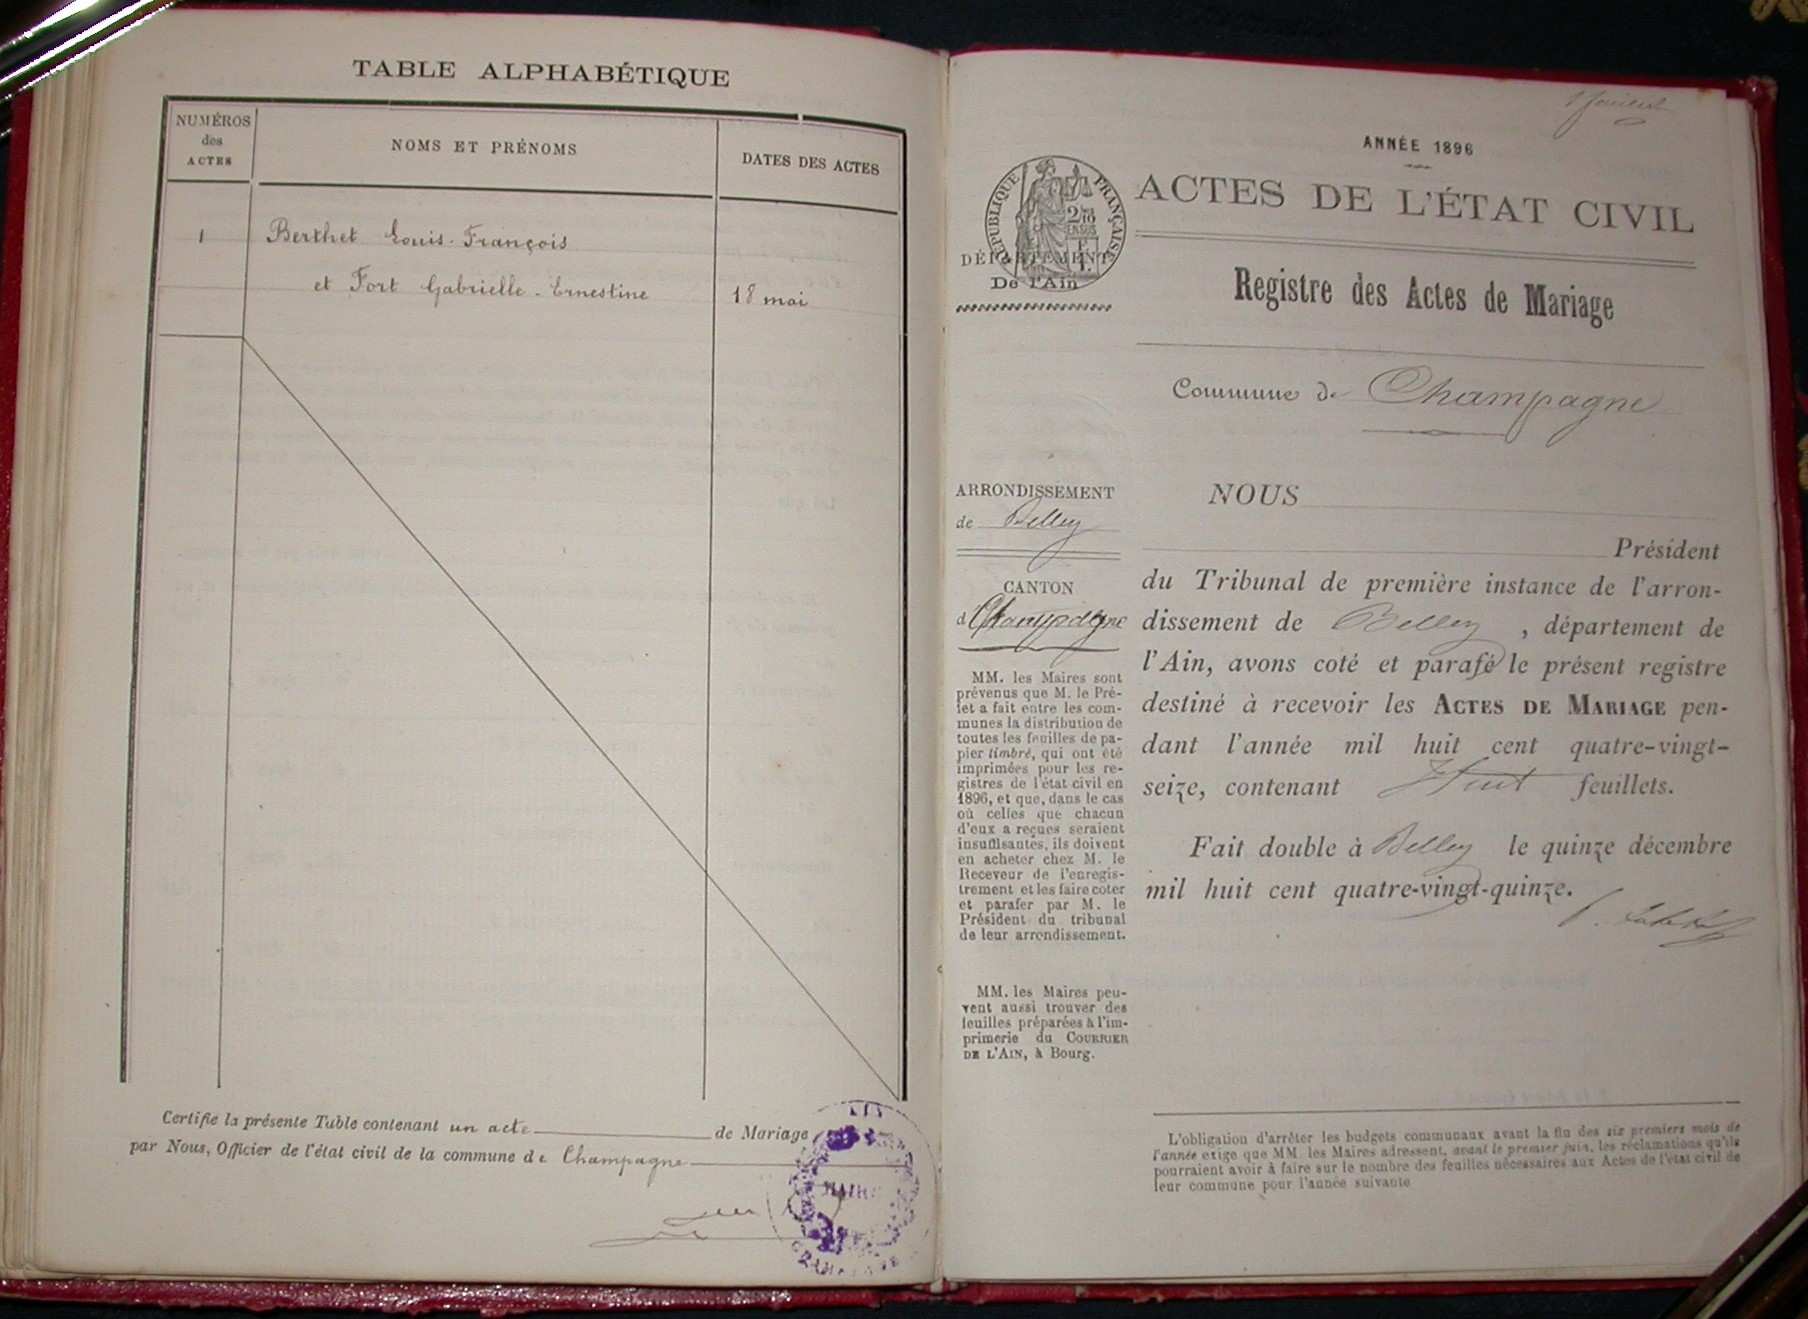 TABLE ALPHABÉTIQUE
NUMÉROS
des
ACTES
NOMS ET PRÉNOMS
DATES DES ACTES
1 Berthet Louis-François
et Fort Gabrielle-Ernestine 18 mai
Certifie la présente Table contenant un acte de Mariage
par Nous, Officier de l'état civil de la commune de Champagne
MAIRIE
ANNÉE 1896
RÉPUBLIQUE FRANÇAISE
ACTES DE L'ÉTAT CIVIL
DÉPARTEMENT
De l'Ain
Registre des Actes de Mariage
Commune de Champagne
ARRONDISSEMENT
de Belley
CANTON
d Champagne
MM. les Maires sont
prévenus que M. le Pré-
fet a fait entre les com-
munes la distribution de
toutes les feuilles de pa-
pier timbré, qui ont été
imprimées pour les re-
gistres de l'état civil en
1896, et que, dans le cas
où celles que chacun
d'eux a reçues seraient
insuffisantes, ils doivent
en acheter chez M. le
Receveur de l'enregis-
trement et les faire coter
et parafer par M. le
Président du tribunal
de leur arrondissement.
MM. les Maires peu-
vent aussi trouver des
feuilles préparées à l'im-
primerie du COURRIER
DE L'AIN, à Bourg.
NOUS
Président
du Tribunal de première instance de l'arron-
dissement de Belley, département de
l'Ain, avons coté et parafé le présent registre
destiné à recevoir les ACTES DE MARIAGE pen-
dant l'année mil huit cent quatre-vingt-
seize, contenant Huit feuillets.
Fait double à Belley le quinze décembre
mil huit cent quatre-vingt-quinze.
L'obligation d'arrêter les budgets communaux avant la fin des six premiers mois de
l'année exige que MM. les Maires adressent, avant le premier juin, les réclamations qu'ils
pourraient avoir à faire sur le nombre des feuilles nécessaires aux Actes de l'état civil de
leur commune pour l'année suivante